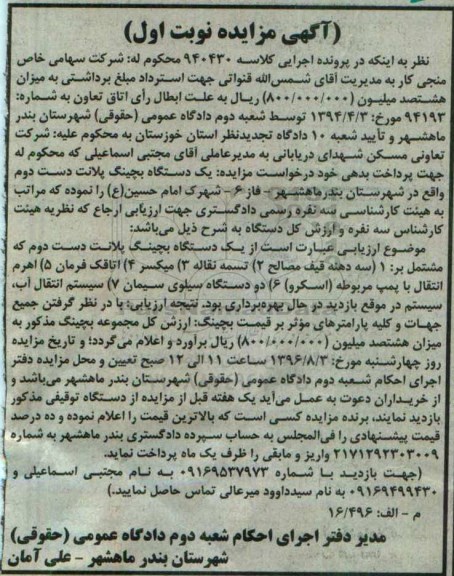 (آگهی مزایده نوبت اول)
نظر به اینکه در پرونده اجرایی کلاسه ۹۴۰۴۳۰ محکوم له: شرکت سهامی خاص
منجی کار به مدیریت آقای شمس‌الله قنواتی جهت استرداد مبلغ برداشتی به میزان
هشتصد میلیون (۸۰۰/۰۰۰/۰۰۰) ریال به علت ابطال رأی اتاق تعاون به شماره:
۹۴۱۹۳ مورخ: ۱۳۹۴/۴/۳ توسط شعبه دوم دادگاه عمومی (حقوقی) شهرستان بندر
ماهشهر و تأیید شعبه ۱۰ دادگاه تجدیدنظر استان خوزستان به محکوم علیه: شرکت
تعاونی مسکن شهدای دریابانی به مدیرعاملی آقای مجتبی اسماعیلی که محکوم له
جهت پرداخت بدهی خود درخواست مزایده: یک دستگاه بچینگ پلانت دست دوم
واقع در شهرستان بندرماهشهر – فاز ۶ – شهرک امام حسین(ع) را نموده که مراتب
به هیئت کارشناسی سه نفره رسمی دادگستری جهت ارزیابی ارجاع که نظریه هیئت
کارشناس سه نفره و ارزش کل دستگاه به شرح ذیل می‌باشد:
موضوع ارزیابی عبارت است از یک دستگاه بچینگ پلانت دست دوم که
مشتمل بر: ۱ (سه دهنه قیف مصالح ۲) تسمه نقاله ۳) میکسر ۴) اتاقک فرمان ۵) اهرم
انتقال با پمپ مربوطه (اسکرو) ۶) دو دستگاه سیلوی سیمان ۷) سیستم انتقال آب،
سیستم در موقع بازدید در حال بهره‌برداری بود. نتیجه ارزیابی: با در نظر گرفتن جمیع
جهات و کلیه پارامترهای مؤثر بر قیمت بچینگ: ارزش کل مجموعه بچینگ مذکور به
میزان هشتصد میلیون (۸۰۰/۰۰۰/۰۰۰) ریال برآورد و اعلام می‌گردد؛ و تاریخ مزایده
روز چهارشنبه مورخ: ۱۳۹۶/۸/۳ ساعت ۱۱ الی ۱۲ صبح تعیین و محل مزایده دفتر
اجرای احکام شعبه دوم دادگاه عمومی (حقوقی) شهرستان بندر ماهشهر می‌باشد و
از خریداران دعوت به عمل می‌آید یک هفته قبل از مزایده از دستگاه توقیفی مذکور
بازدید نمایند، برنده مزایده کسی است که بالاترین قیمت را اعلام نموده و ده درصد
قیمت پیشنهادی را فی‌المجلس به حساب سپرده دادگستری بندر ماهشهر به شماره
۲۱۷۱۲۹۲۳۰۳۰۰۹ واریز و مابقی را ظرف یک ماه پرداخت نماید.
(جهت بازدید با شماره ۰۹۱۶۹۵۳۷۹۷۳ به نام مجتبی اسماعیلی و
۰۹۱۶۹۴۹۹۴۳۰ به نام سیدداوود میرعالی تماس حاصل نمایید.)
م – الف: ۱۶/۴۹۶
مدیر دفتر اجرای احکام شعبه دوم دادگاه عمومی (حقوقی)
شهرستان بندر ماهشهر – علی آمان